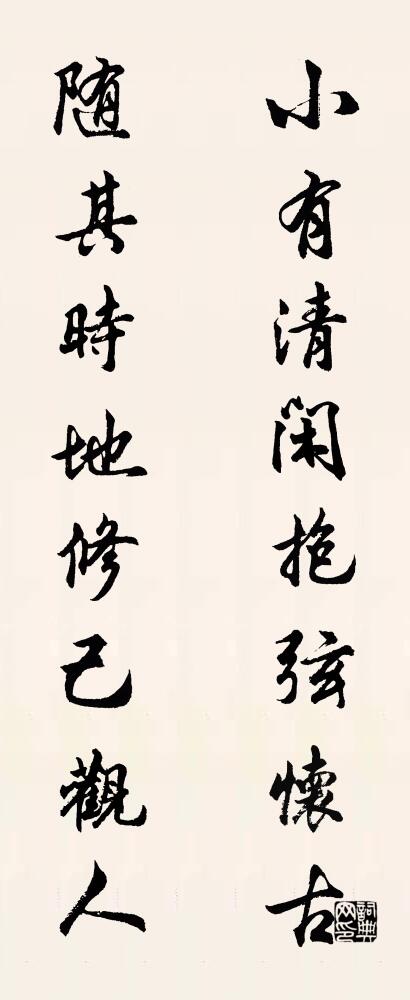 小有清閑抱弦懷古
随其時地修己觀人
詞典網印